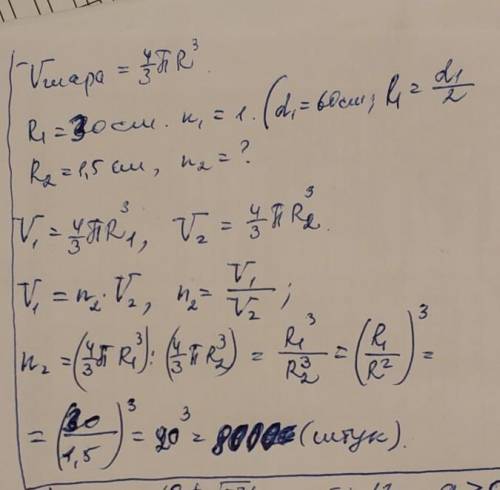 Vшара = 4/3 πR³.
R₁ = 30 см. n₁ = 1. (d₁ = 60 см; R₁ = d₁/2
R₂ = 1,5 см, n₂ = ?
V₁ = 4/3 πR₁³, V₂ = 4/3 πR₂³.
V₁ = n₂ · V₂, n₂ = V₁/V₂;
n₂ = (4/3 πR₁³) : (4/3 πR₂³) = R₁³/R₂³ = (R₁/R²)³ =
= (30/1,5)³ = 20³ = 8000 (штук).